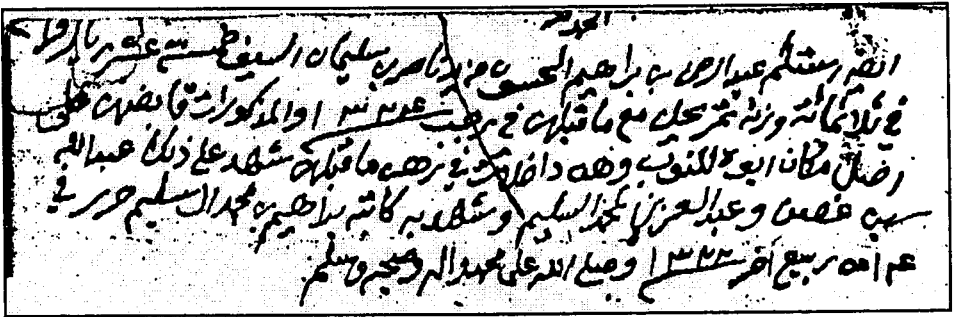 الحمد لله
أيضا استلم عبدالرحمن بن براهيم من يد ناصر بن سليمان السيف ستة عشر ريال
في ثلاثمائة وزنة تمر يحلن مع ما قبلهن في رجب ١٣٣٤ والمذكورات قابضهن على
مكان ابوه وهن داخلات في رهن ما قبلهن شهد على ذلك عبدالله
بن غصن وعبدالعزيز المحمد السليم وشهد به كاتبه براهيم بن محمد السليم حرر في
ربيع آخر ١٣٣٣ وصلى الله على محمد وآله وصحبه وسلم